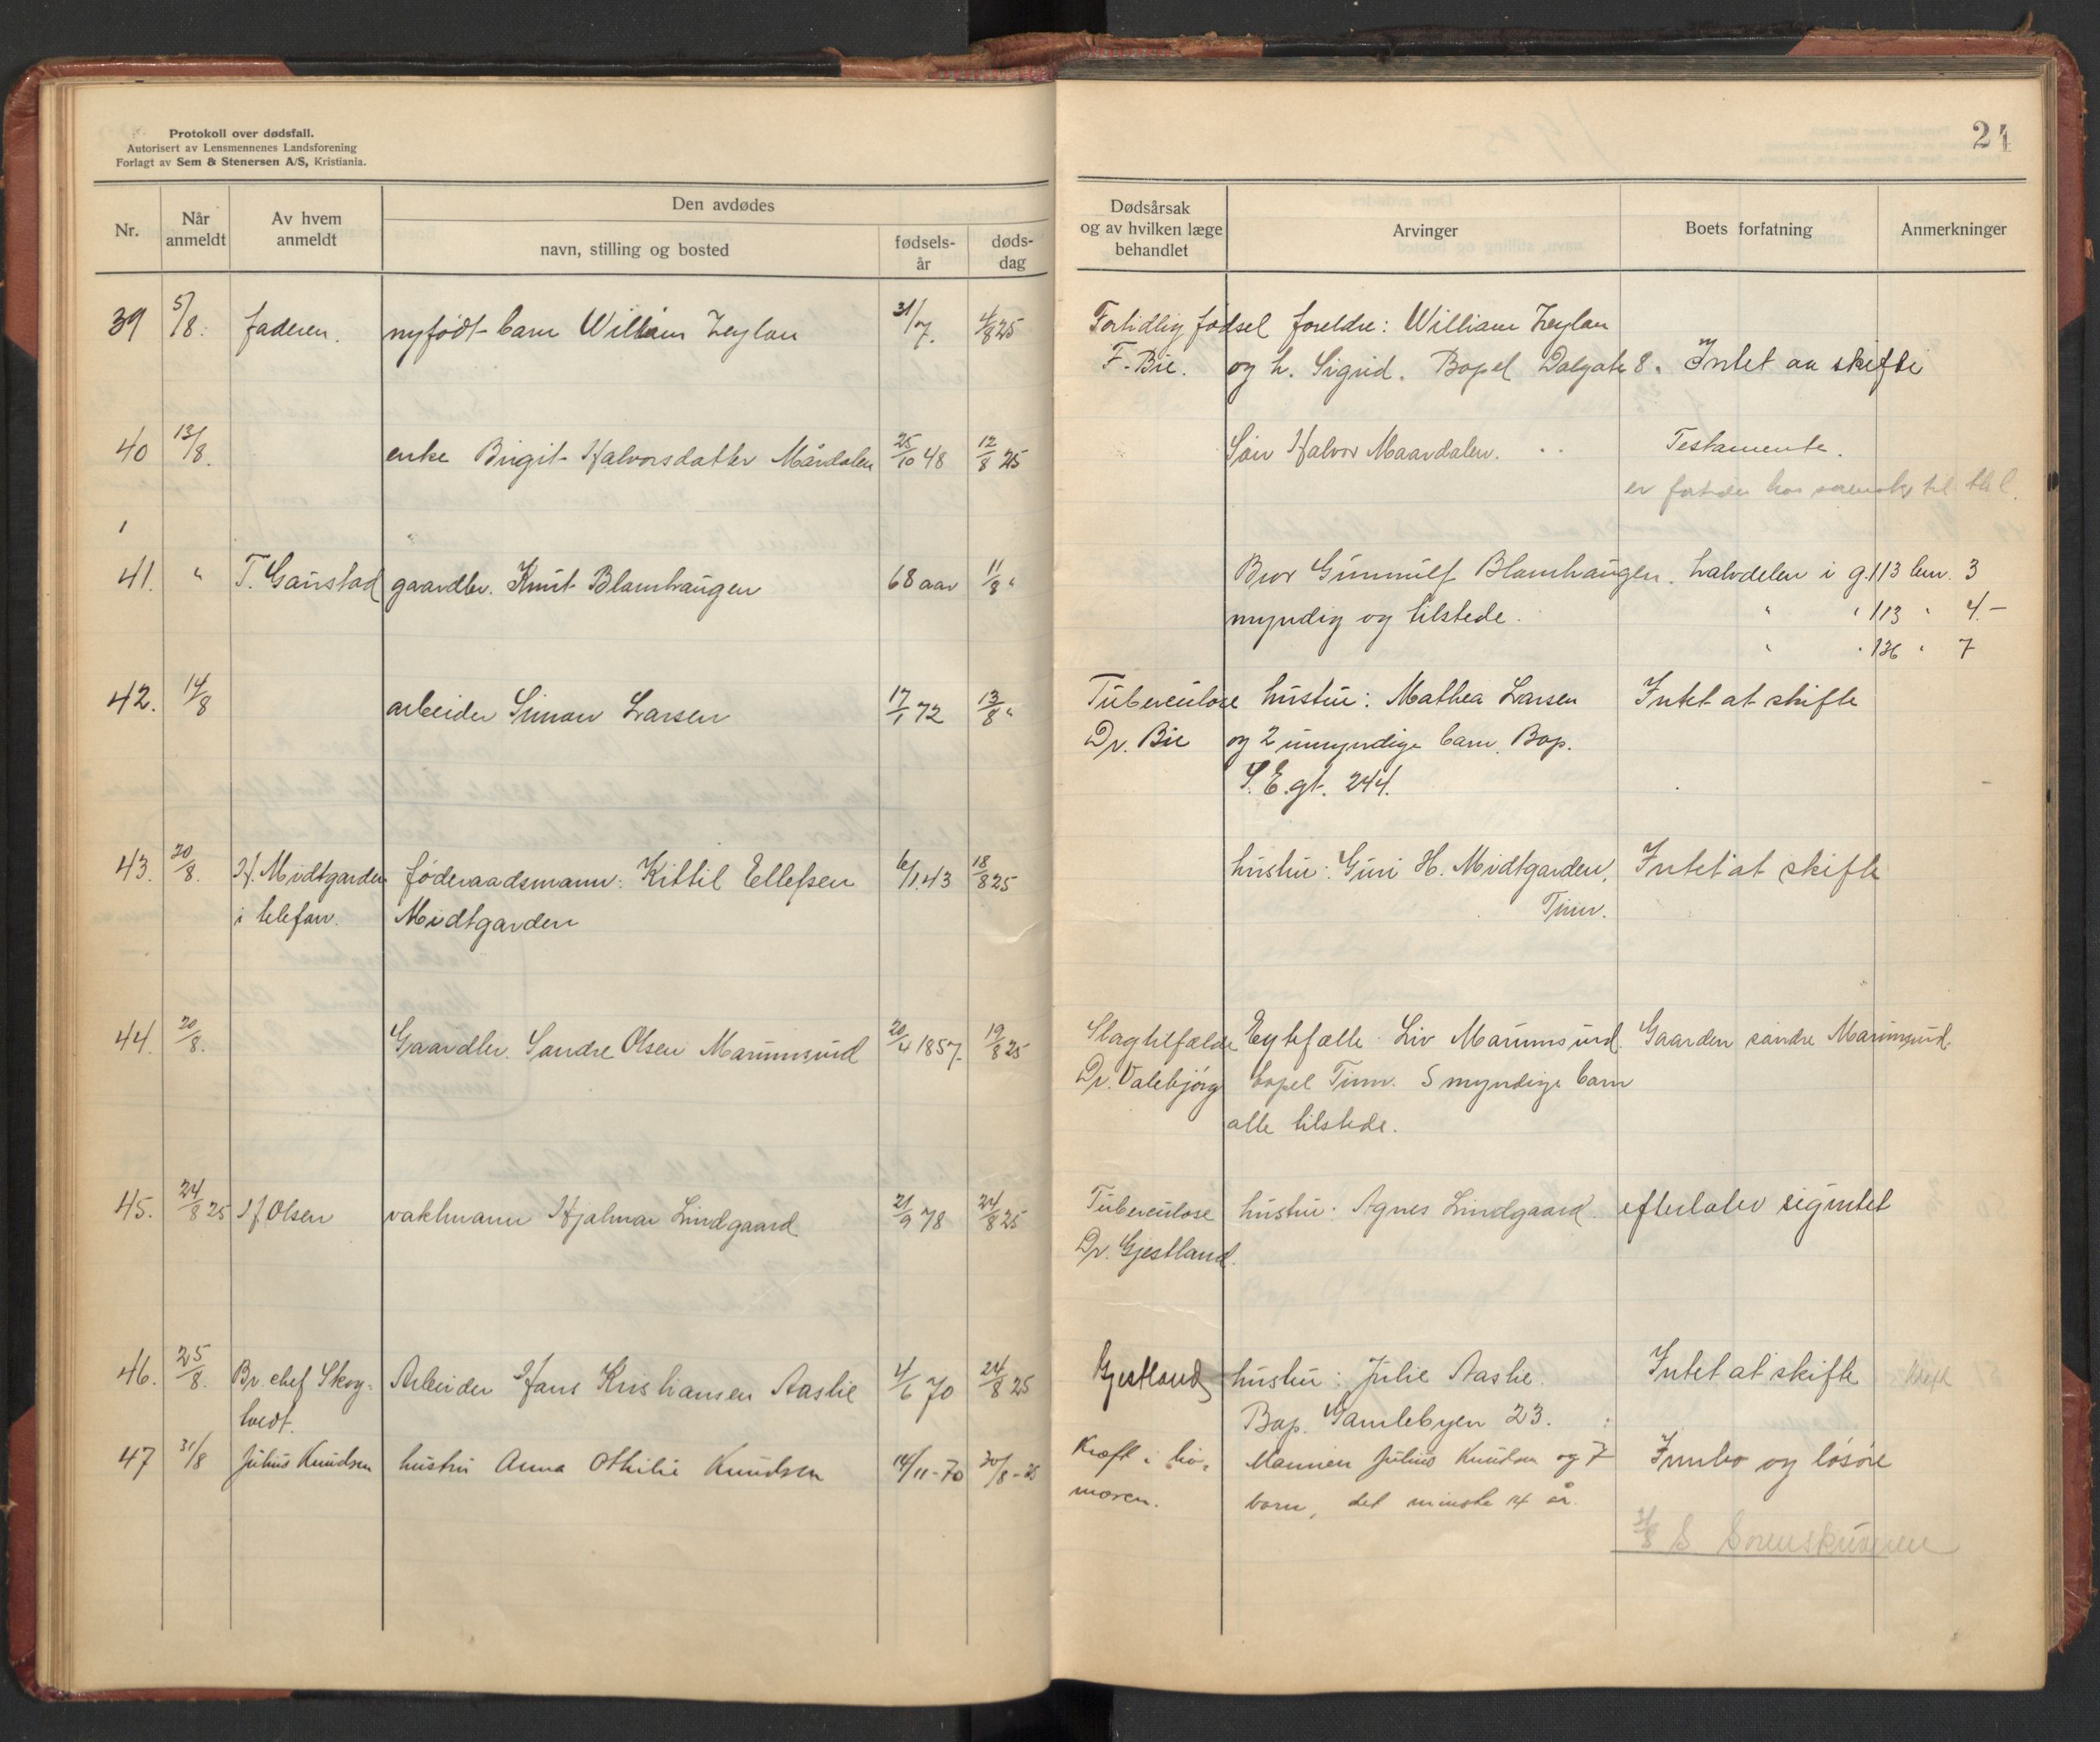 Protokoll over dødsfall.
Autorisert av Lensmennenes Landsforening
Forlagt av Sem & Stenersen A/S, Kristiania.
24
Nr.
Når anmeldt
Av hvem anmeldt
Den avdødes
navn, stilling og bosted
fødsels-år
døds-dag
Dødsårsak og av hvilken læge behandlet
Arvinger
Boets forfatning
Anmerkninger
39 5/8. faderen. nyfødt barn William 31/7. 4/8 25 Fortidlig fødsel foreldre: William
F. Bie. og h. Sigrid. Bopel Dalgate 8. Intet aa skifte
40 13/8. enke Birgit Halvorsdatter Mårdalen 25/10 48 12/8 25 Søn Halvor Maardalen. Testamente.
er til
41. " T. Gaustad gaardbr. Knut 68 aar 11/8 " Bror Gunnulf halvdelen i g. 113 brn. 3
myndig og tilstede. " " 113 " 4.-
" " 136 " 7
42. 14/8 arbeider Simon Larsen 17/1 72 13/8 " Tuberculose hustru: Mathea Larsen Intet at skifte
Dr. Bie og 2 umyndige barn. Bop.
S. E. gt. 244.
43. 20/8. H. Midtgarden føderaadsmann: Kittil Ellefsen 6/1 43 18/8 25 hustru: Guri H. Midtgarden, Intet at skifte
i telefon. Midtgarden Tinn.
44. 20/8. Gaardbr. Sondre Olsen Marumsrud 20/4 1857. 19/8 25 Slagtilfælde Egtefælle Liv Marumsrud. Gaarden søndre Marumsrud.
Dr. Valebjørg bopel Tinn. 5 myndige barn
alle tilstede.
45. 24/8 25 H Olsen vaktmann Hjalmar Lindgaard 21/9 78 24/8 25 Tuberculose hustru: Agnes Lindgaard efterlater sig intet
Dr. Gjestland.
46. 25/8. Br. chef Skog- Arbeider Hans Kristiansen Aaslie 4/6 70 24/8 25 Gjestland hustru: Julie Aaslie. Intet at skifte
tvedt. Bop. Gamlebyen 23.
47 31/8 Julius Knudsen hustru Anna Othilie Knudsen 14/11-70 30/8-25 Kræft i liv- Mannen Julius Knudsen og 7 Innbo og løsøre
moren. barn, det minste 14 år.
31/8 S Sorenskriveren